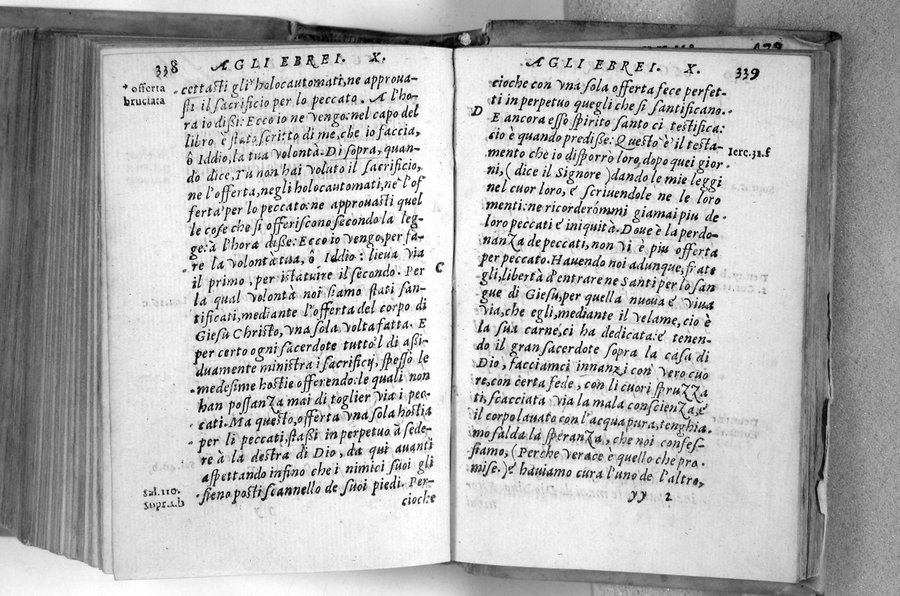 338 AGLI EBREI. X.
* offerta
bruciata
cettasti gli* holocautomati, ne approua-
sti il sacrificio per lo peccato. A l'ho-
ra io dißi: Ecco io ne vengo: nel capo del
libro è stato scritto di me, che io faccia,
ô Iddio, la tua volontà. Di sopra, quan-
do dice, Tu non hai voluto il sacrificio,
ne l'offerta, ne gli holocautomati, ne l'of
ferta per lo peccato: ne approuasti quel
le cose che si offeriscono secondo la leg-
ge: à l'hora diße: Ecco io vengo, per fa-
re la volontà tua, ô Iddio: lieua via
il primo, per istatuire il secondo. Per
C
la qual volontà noi siamo stati san-
tificati, mediante l'offerta del corpo di
Giesu Christo, vna sola volta fatta. E
per certo ogni sacerdote tutto'l dì assi-
duamente ministra i sacrificij, spesso le
medesime hostie offerendo: le quali non
han possanza mai di toglier via i pec-
cati. Ma questo, offerta vna sola hostia
per li peccati, staßi in perpetuo à sede-
re à la destra di Dio, da qui auanti
aspettando infino che i nimici suoi gli
sieno posti scannello de suoi piedi. Per-
sal. 110.
sopr.1.b
cioche
AGLI EBREI. X. 339
cioche con vna sola offerta fece perfet-
ti in perpetuo quegli che si santificano.
D
E ancora esso spirito santo ci testifica:
ciò è quando predisse: Questo è il testa-
mento che io disporrò loro, dopo quei gior-
Ierc.31.f
ni, (dice il Signore) dando le mie leggi
nel cuor loro, e scriuendole ne le loro
menti: ne ricorderómmi giamai piu de-
loro peccati e iniquità. Doue è la perdo-
nanza de peccati, non vi è piu offerta
per peccato. Hauendo noi adunque, frate
gli, libertà d'entrare ne Santi per lo san
gue di Giesù, per quella nuoua e viua
via, che egli, mediante il velame, cio è
la sua carne, ci ha dedicata: e tenen-
do il gran sacerdote sopra la casa di
Dio, facciamci innanzi con vero cuo
re, con certa fede, con li cuori spruzza
ti, scacciata via la mala conscienza, e
il corpo lauato con l'acqua pura, tenghia-
mo salda la speranza, che noi confes-
siamo, (Perche verace è quello che pro-
mise.) e habiamo cura l'uno de l'altro,
yy 2